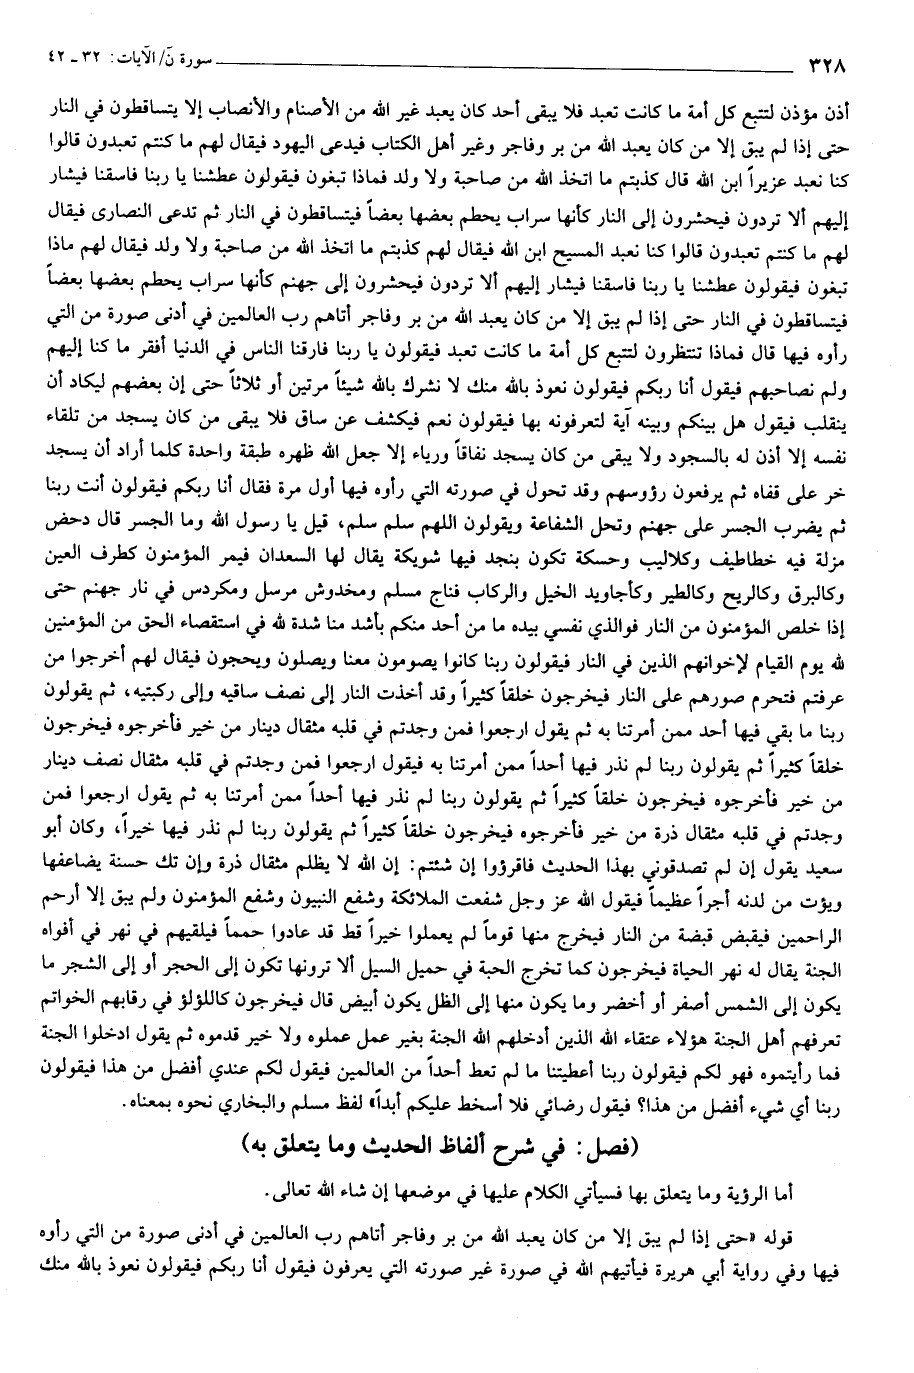 ٣٢٨ سورة نۤ/ الآيات: ٣٢ ـ ٤٢
أذن مؤذن لتتبع كل أمة ما كانت تعبد فلا يبقى أحد كان يعبد غير الله من الأصنام والأنصاب إلا يتساقطون في النار
حتى إذا لم يبق إلا من كان يعبد الله من بر وفاجر وغير أهل الكتاب فيدعى اليهود فيقال لهم ما كنتم تعبدون قالوا
كنا نعبد عزيراً ابن الله قال كذبتم ما اتخذ الله من صاحبة ولا ولد فماذا تبغون فيقولون عطشنا يا ربنا فاسقنا فيشار
إليهم ألا تردون فيحشرون إلى النار كأنها سراب يحطم بعضها بعضاً فيتساقطون في النار ثم تدعى النصارى فيقال
لهم ما كنتم تعبدون قالوا كنا نعبد المسيح ابن الله فيقال لهم كذبتم ما اتخذ الله من صاحبة ولا ولد فيقال لهم ماذا
تبغون فيقولون عطشنا يا ربنا فاسقنا فيشار إليهم ألا تردون فيحشرون إلى جهنم كأنها سراب يحطم بعضها بعضاً
فيتساقطون في النار حتى إذا لم يبق إلا من كان يعبد الله من بر وفاجر أتاهم رب العالمين في أدنى صورة من التي
رأوه فيها قال فماذا تنتظرون لتتبع كل أمة ما كانت تعبد فيقولون يا ربنا فارقنا الناس في الدنيا أفقر ما كنا إليهم
ولم نصاحبهم فيقول أنا ربكم فيقولون نعوذ بالله منك لا نشرك بالله شيئاً مرتين أو ثلاثاً حتى إن بعضهم ليكاد أن
ينقلب فيقول هل بينكم وبينه آية لتعرفونه بها فيقولون نعم فيكشف عن ساق فلا يبقى من كان يسجد من تلقاء
نفسه إلا أذن له بالسجود ولا يبقى من كان يسجد نفاقاً ورياء إلا جعل الله ظهره طبقة واحدة كلما أراد أن يسجد
خر على قفاه ثم يرفعون رؤوسهم وقد تحول في صورته التي رأوه فيها أول مرة فقال أنا ربكم فيقولون أنت ربنا
ثم يضرب الجسر على جهنم وتحل الشفاعة ويقولون اللهم سلم سلم، قيل يا رسول الله وما الجسر قال دحض
مزلة فيه خطاطيف وكلاليب وحسكة تكون بنجد فيها شويكة يقال لها السعدان فيمر المؤمنون كطرف العين
وكالبرق وكالريح وكالطير وكأجاويد الخيل والركاب فناج مسلم ومخدوش مرسل ومكردس في نار جهنم حتى
إذا خلص المؤمنون من النار فوالذي نفسي بيده ما من أحد منكم بأشد منا شدة لله في استقصاء الحق من المؤمنين
لله يوم القيام لإخوانهم الذين في النار فيقولون ربنا كانوا يصومون معنا ويصلون ويحجون فيقال لهم أخرجوا من
عرفتم فتحرم صورهم على النار فيخرجون خلقاً كثيراً وقد أخذت النار إلى نصف ساقيه وإلى ركبتيه، ثم يقولون
ربنا ما بقي فيها أحد ممن أمرتنا به ثم يقول ارجعوا فمن وجدتم في قلبه مثقال دينار من خير فأخرجوه فيخرجون
خلقاً كثيراً ثم يقولون ربنا لم نذر فيها أحداً ممن أمرتنا به فيقول ارجعوا فمن وجدتم في قلبه مثقال نصف دينار
من خير فأخرجوه فيخرجون خلقاً كثيراً ثم يقولون ربنا لم نذر فيها أحداً ممن أمرتنا به ثم يقول ارجعوا فمن
وجدتم في قلبه مثقال ذرة من خير فأخرجوه فيخرجون خلقاً كثيراً ثم يقولون ربنا لم نذر فيها خيراً، وكان أبو
سعيد يقول إن لم تصدقوني بهذا الحديث فاقرؤوا إن شئتم: إن الله لا يظلم مثقال ذرة وإن تك حسنة يضاعفها
ويؤت من لدنه أجراً عظيماً فيقول الله عز وجل شفعت الملائكة وشفع النبيون وشفع المؤمنون ولم يبق إلا أرحم
الراحمين فيقبض قبضة من النار فيخرج منها قوماً لم يعملوا خيراً قط قد عادوا حمماً فيلقيهم في نهر في أفواه
الجنة يقال له نهر الحياة فيخرجون كما تخرج الحبة في حميل السيل ألا ترونها تكون إلى الحجر أو إلى الشجر ما
يكون إلى الشمس أصفر أو أخضر وما يكون منها إلى الظل يكون أبيض قال فيخرجون كاللؤلؤ في رقابهم الخواتم
تعرفهم أهل الجنة هؤلاء عتقاء الله الذين أدخلهم الله الجنة بغير عمل عملوه ولا خير قدموه ثم يقول ادخلوا الجنة
فما رأيتموه فهو لكم فيقولون ربنا أعطيتنا ما لم تعط أحداً من العالمين فيقول لكم عندي أفضل من هذا فيقولون
ربنا أي شيء أفضل من هذا؟ فيقول رضائي فلا أسخط عليكم أبداً» لفظ مسلم والبخاري نحوه بمعناه.
(فصل: في شرح ألفاظ الحديث وما يتعلق به)
أما الرؤية وما يتعلق بها فسيأتي الكلام عليها في موضعها إن شاء الله تعالى.
قوله «حتى إذا لم يبق إلا من كان يعبد الله من بر وفاجر أتاهم رب العالمين في أدنى صورة من التي رأوه
فيها وفي رواية أبي هريرة فيأتيهم الله في صورة غير صورته التي يعرفون فيقول أنا ربكم فيقولون نعوذ بالله منك